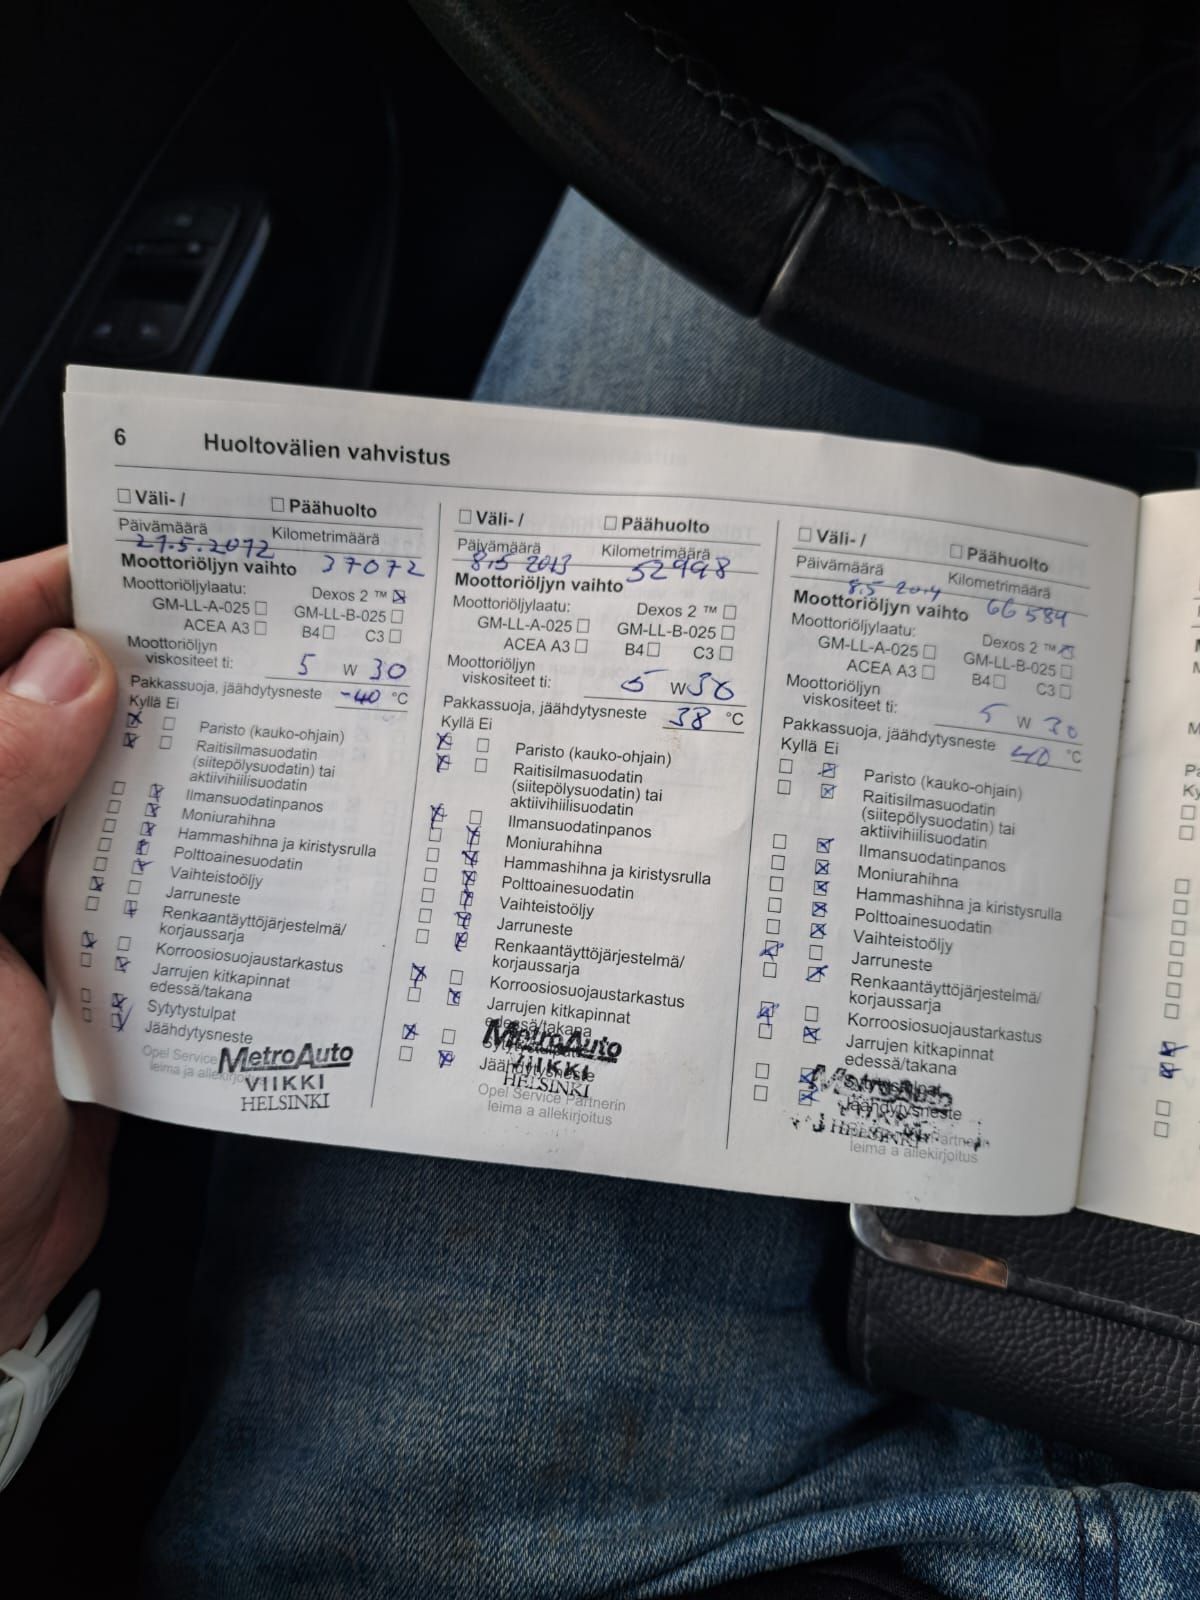 6 Huoltovälien vahvistus
☐ Väli- / ☐ Päähuolto
Päivämäärä Kilometrimäärä
29.5.2012 37072
Moottoriöljyn vaihto
Moottoriöljylaatu: Dexos 2 ™ ☒
GM-LL-A-025 ☐ GM-LL-B-025 ☐
ACEA A3 ☐ B4 ☐ C3 ☐
Moottoriöljyn
viskositeet ti: 5 W 30
Pakkassuoja, jäähdytysneste -40 °C
Kyllä Ei
☒ ☐ Paristo (kauko-ohjain)
☒ ☐ Raitisilmasuodatin
(siitepölysuodatin) tai
aktiivihiilisuodatin
☐ ☒ Ilmansuodatinpanos
☐ ☒ Moniurahihna
☐ ☒ Hammashihna ja kiristysrulla
☐ ☒ Polttoainesuodatin
☐ ☒ Vaihteistoöljy
☒ ☐ Jarruneste
☐ ☒ Renkaantäyttöjärjestelmä/
korjaussarja
☒ ☐ Korroosiosuojaustarkastus
☐ ☒ Jarrujen kitkapinnat
edessä/takana
☐ ☒ Sytytystulpat
☐ ☒ Jäähdytysneste
Opel Service
leima ja allekirjoitus
MetroAuto
VIIKKI
HELSINKI
☐ Väli- / ☐ Päähuolto
Päivämäärä Kilometrimäärä
8.5 2013 52998
Moottoriöljyn vaihto
Moottoriöljylaatu: Dexos 2 ™ ☐
GM-LL-A-025 ☐ GM-LL-B-025 ☐
ACEA A3 ☐ B4 ☐ C3 ☐
Moottoriöljyn
viskositeet ti: 5 W 30
Pakkassuoja, jäähdytysneste 38 °C
Kyllä Ei
☒ ☐ Paristo (kauko-ohjain)
☒ ☐ Raitisilmasuodatin
(siitepölysuodatin) tai
aktiivihiilisuodatin
☒ ☐ Ilmansuodatinpanos
☐ ☒ Moniurahihna
☐ ☒ Hammashihna ja kiristysrulla
☐ ☒ Polttoainesuodatin
☐ ☒ Vaihteistoöljy
☐ ☒ Jarruneste
☐ ☒ Renkaantäyttöjärjestelmä/
korjaussarja
☒ ☐ Korroosiosuojaustarkastus
☐ ☒ Jarrujen kitkapinnat
edessä/takana
☒ ☐
☐ ☒ Jäähdytysneste
MetroAuto
VIIKKI
HELSINKI
Opel Service Partnerin
leima a allekirjoitus
☐ Väli- / ☐ Päähuolto
Päivämäärä Kilometrimäärä
8.5 2014 66584
Moottoriöljyn vaihto
Moottoriöljylaatu: Dexos 2 ™ ☒
GM-LL-A-025 ☐ GM-LL-B-025 ☐
ACEA A3 ☐ B4 ☐ C3 ☐
Moottoriöljyn
viskositeet ti: 5 W 30
Pakkassuoja, jäähdytysneste 40 °C
Kyllä Ei
☐ ☒ Paristo (kauko-ohjain)
☐ ☒ Raitisilmasuodatin
(siitepölysuodatin) tai
aktiivihiilisuodatin
☐ ☒ Ilmansuodatinpanos
☐ ☒ Moniurahihna
☐ ☒ Hammashihna ja kiristysrulla
☐ ☒ Polttoainesuodatin
☐ ☒ Vaihteistoöljy
☒ ☐ Jarruneste
☐ ☒ Renkaantäyttöjärjestelmä/
korjaussarja
☒ ☐ Korroosiosuojaustarkastus
☐ ☒ Jarrujen kitkapinnat
edessä/takana
☐ ☒
☐ ☒ Jäähdytysneste
MetroAuto
HELSINKI
leima a allekirjoitus